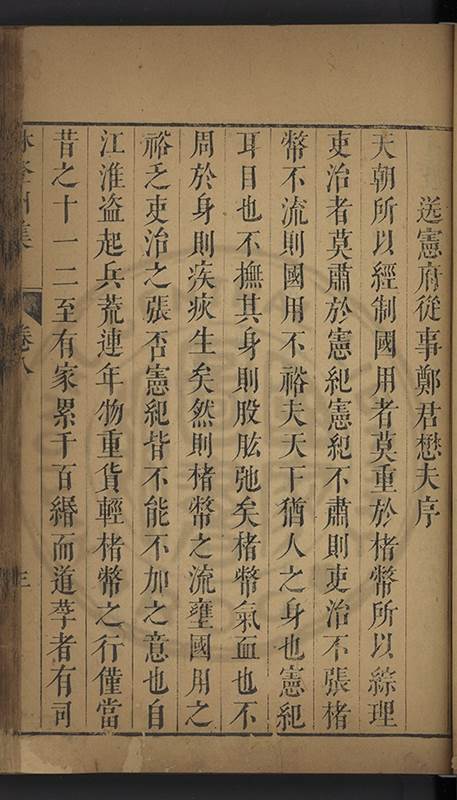 送憲府從事鄭君懋夫序
天朝所以經制國用者莫重於楮幣所以綜理
吏治者莫肅於憲紀憲紀不肅則吏治不張楮
幣不流則國用不裕夫天下猶人之身也憲紀
耳目也不撫其身則股肱弛矣楮幣氣血也不
周於身則疾疢生矣然則楮幣之流壅國用之
裕乏吏治之張否憲紀皆不能不加之意也自
江淮盗起兵荒連年物重貨輕楮幣之行僅當
昔之十一二至有家累千百緡而道莩者有司
集 卷八 三